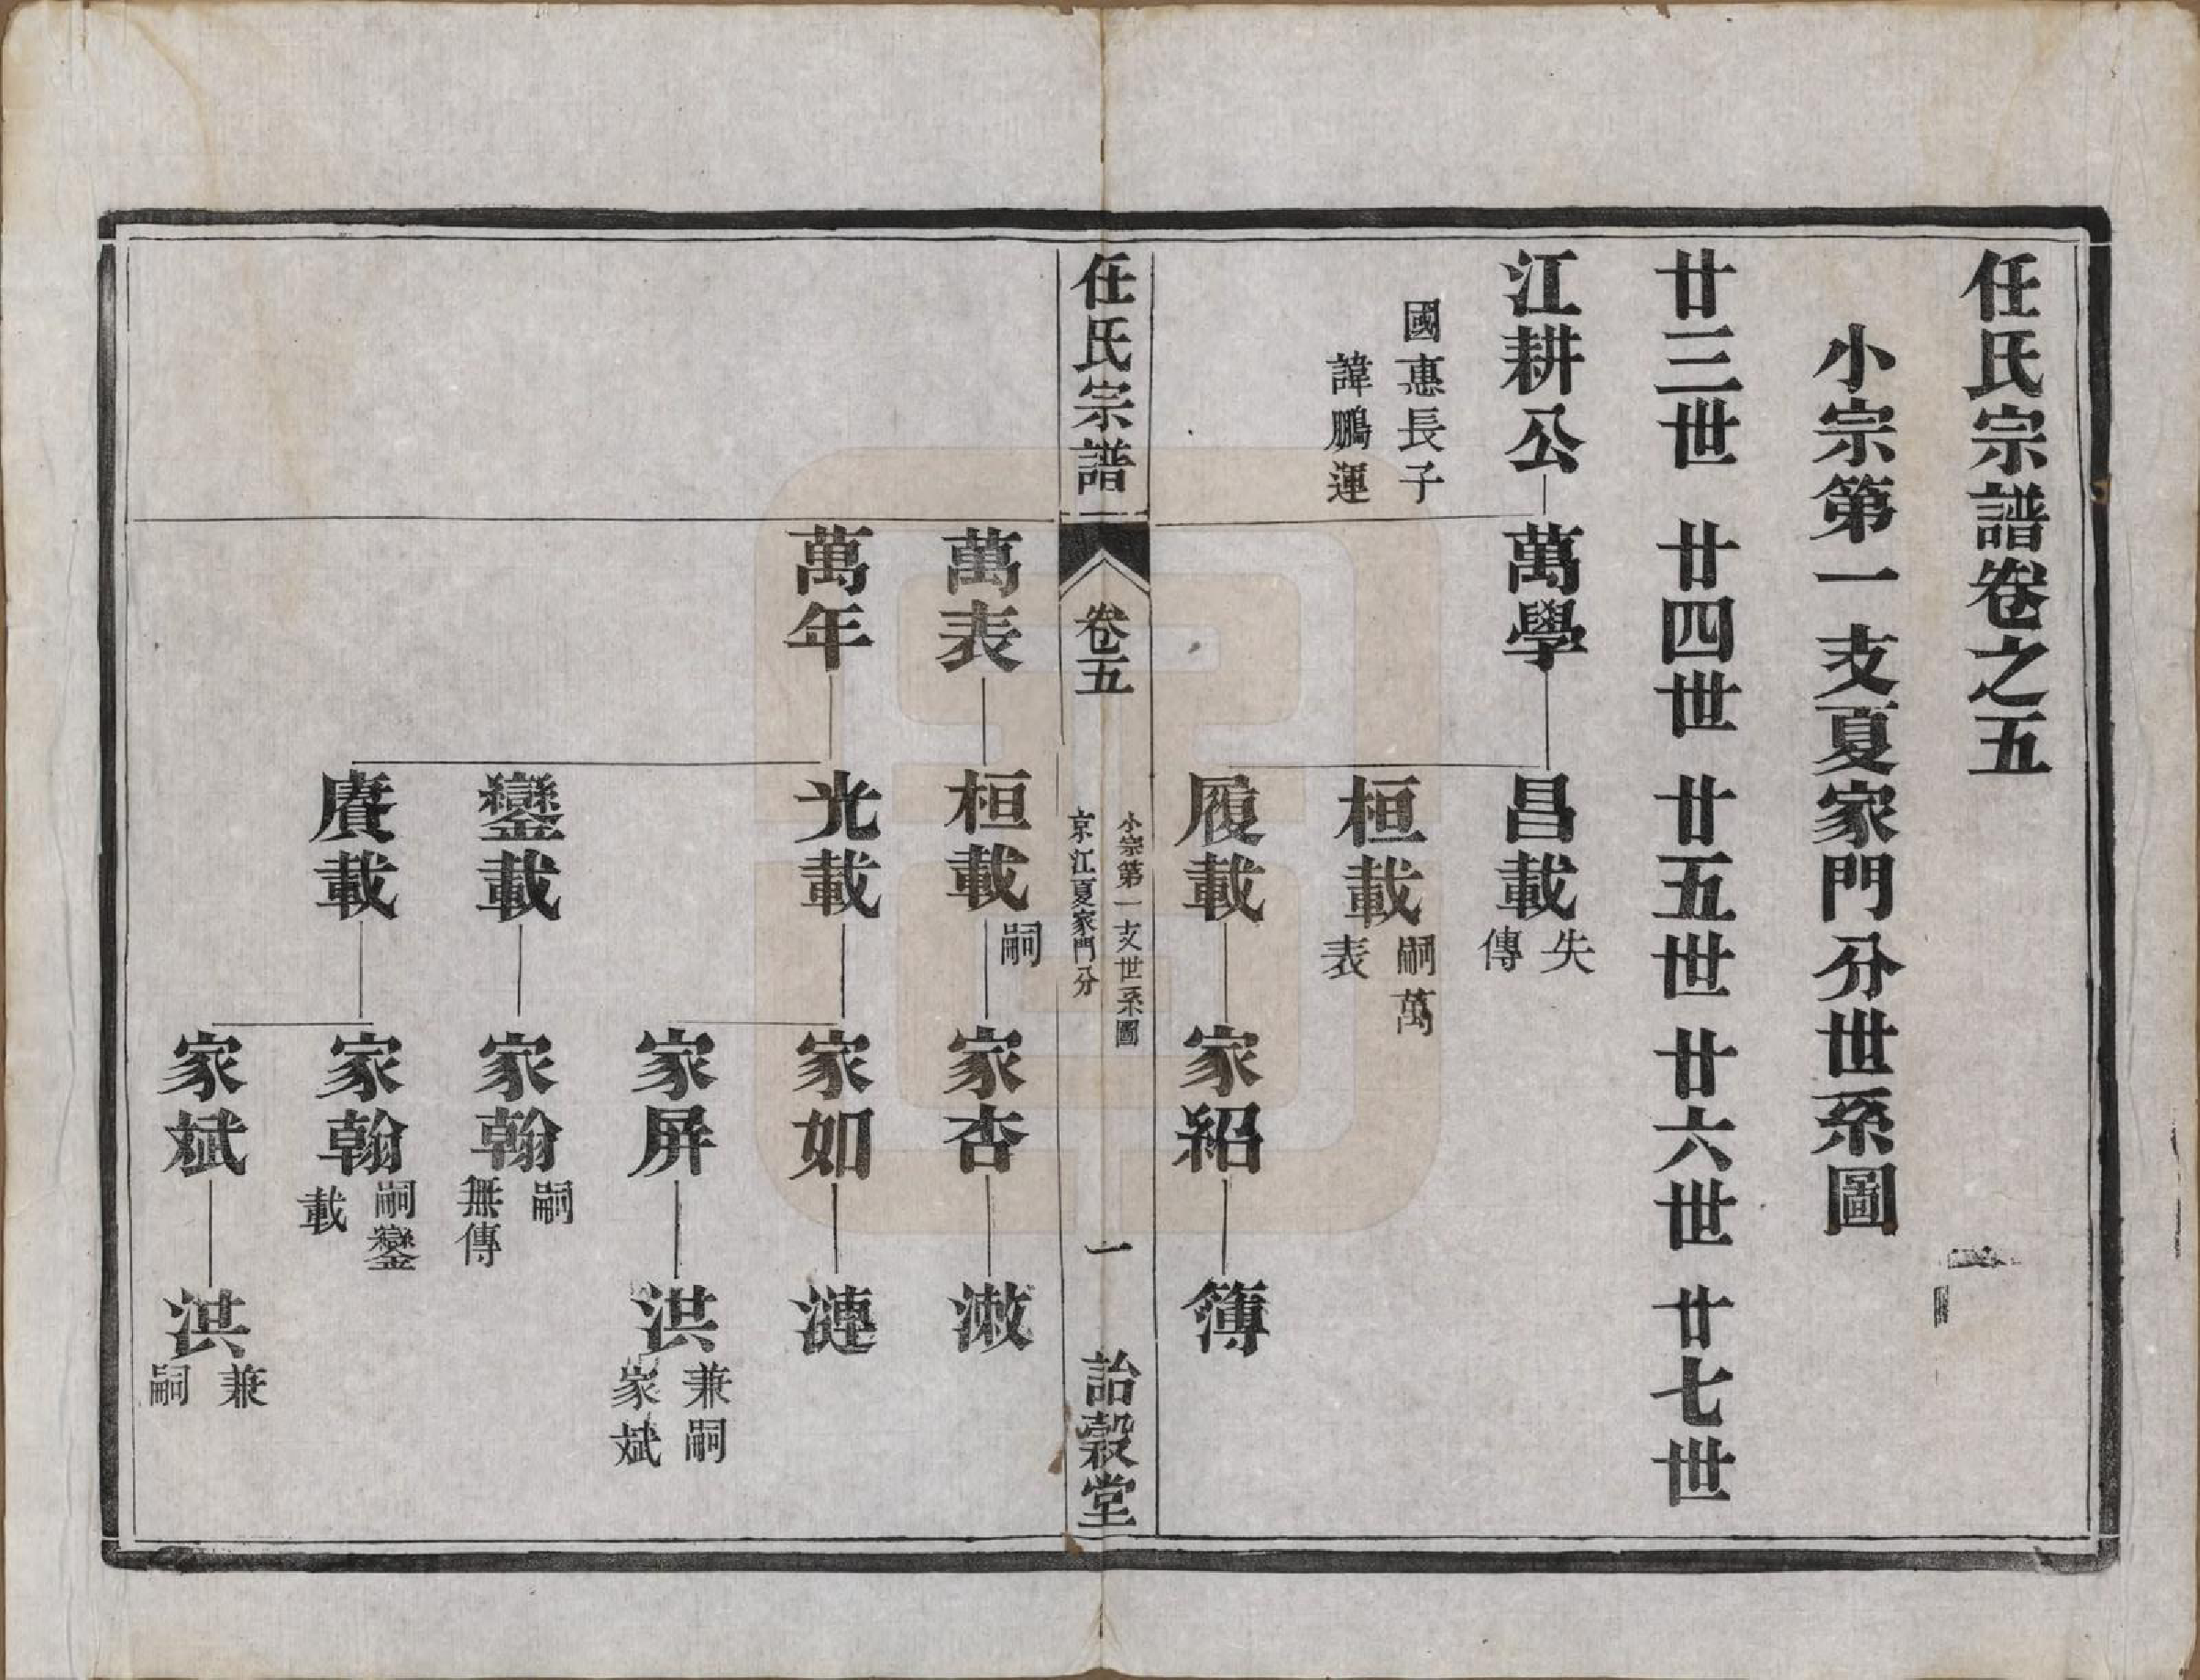 任氏宗譜卷之五
小宗第一支夏家門分世系圖
廿三世 廿四世 廿五世 廿六世 廿七世
江耕公 萬學 昌載 失傳
國惠長子 諱鵬運
桓載 嗣萬表
履載 家紹 簿
任氏宗譜 卷五 小宗第一支世系圖 京江夏家門分 一 詒穀堂
萬表 桓載 嗣 家杏 漵
萬年 光載 家如 漣
家屏 洪 兼嗣家斌
鑾載 家翰 嗣 無傳
賡載 家翰 嗣鑾載
家斌 洪 兼嗣